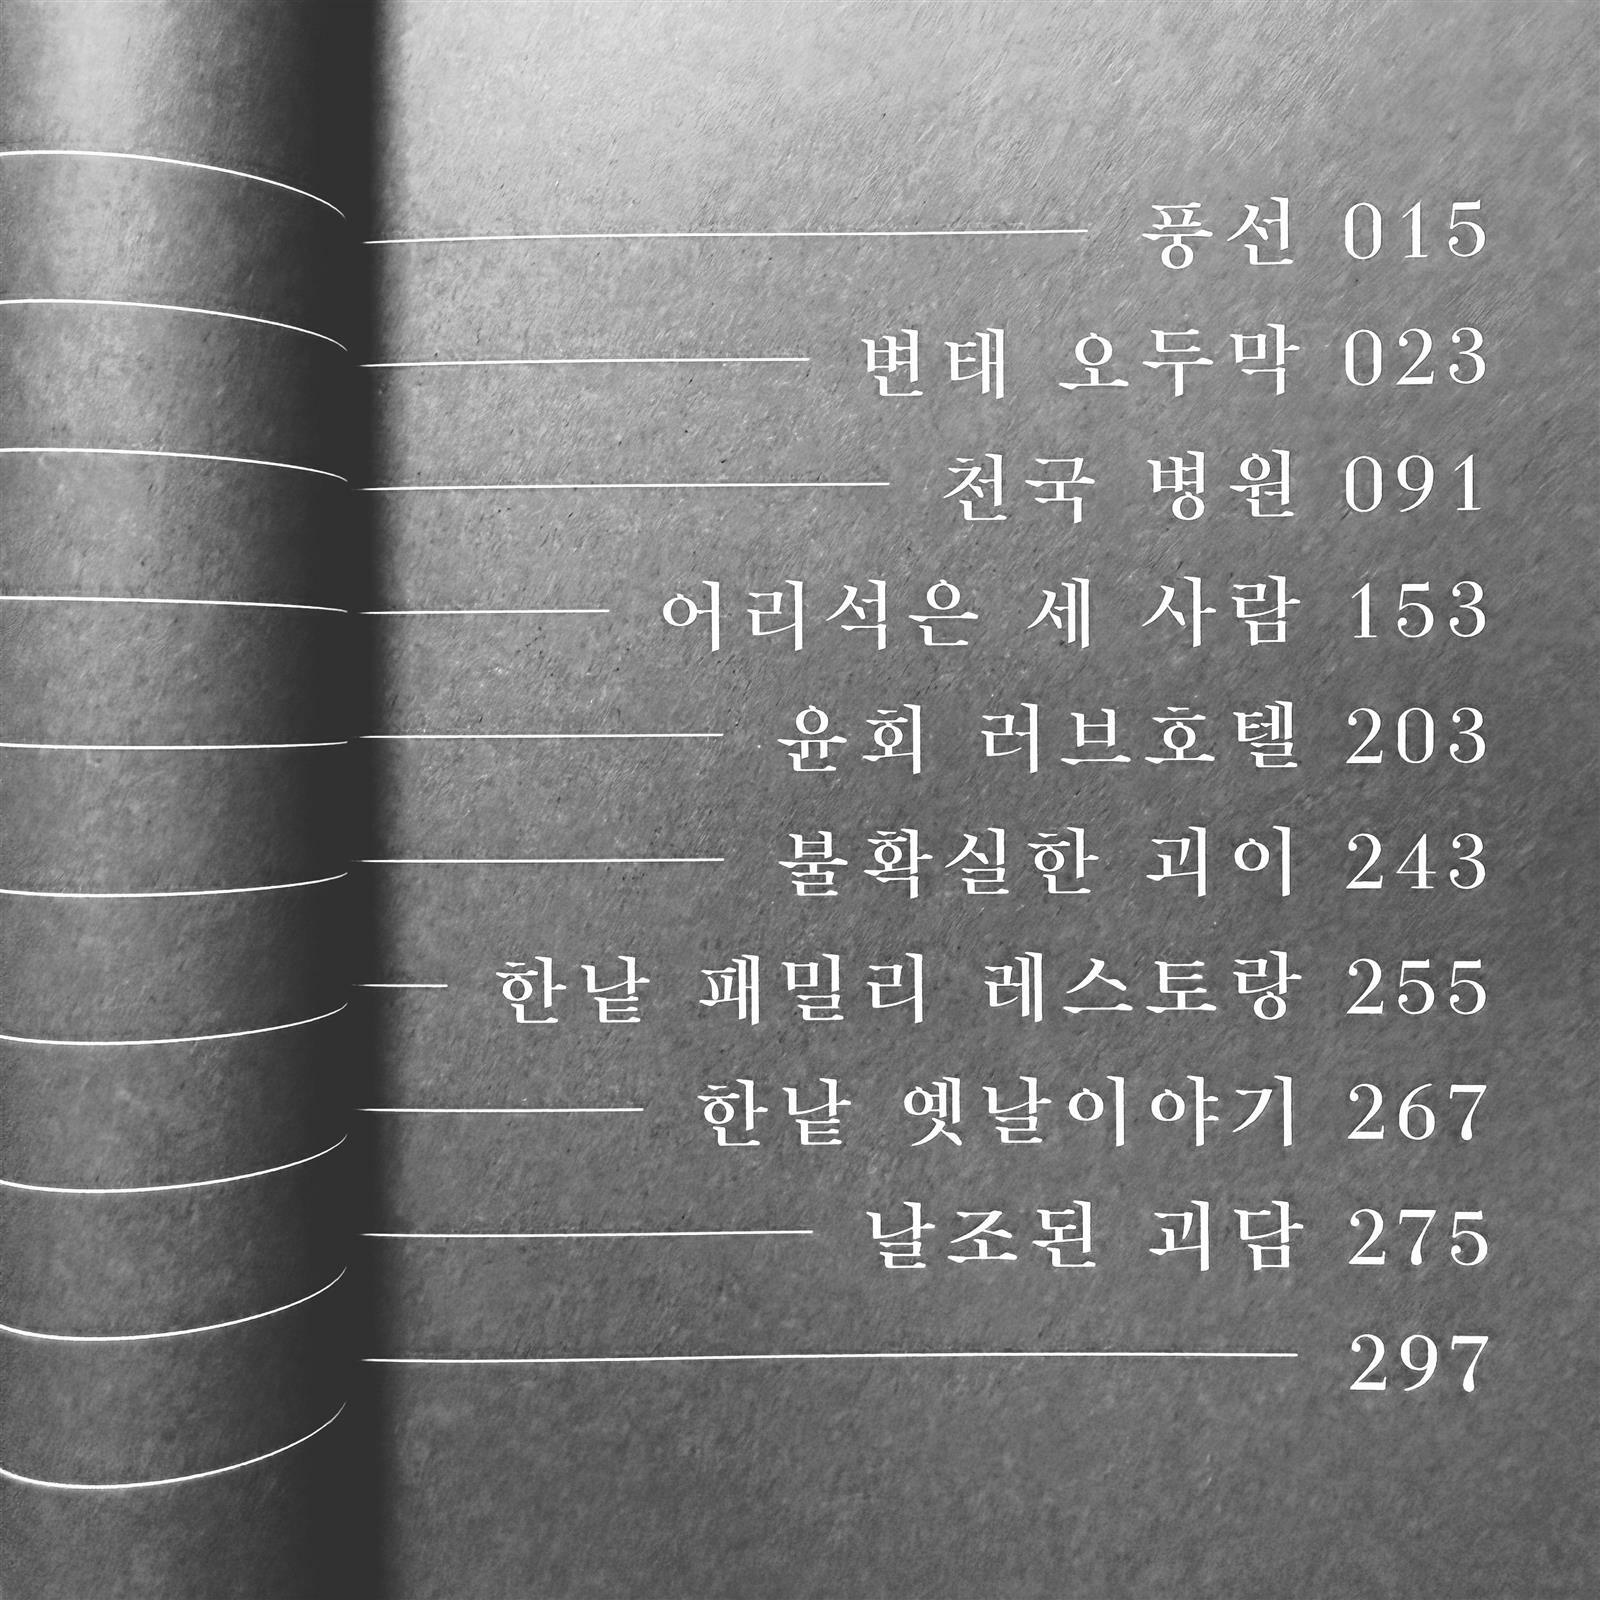 풍선 015
변태 오두막 023
천국 병원 091
어리석은 세 사람 153
윤회 러브호텔 203
불확실한 괴이 243
한낱 패밀리 레스토랑 255
한낱 옛날이야기 267
날조된 괴담 275
297